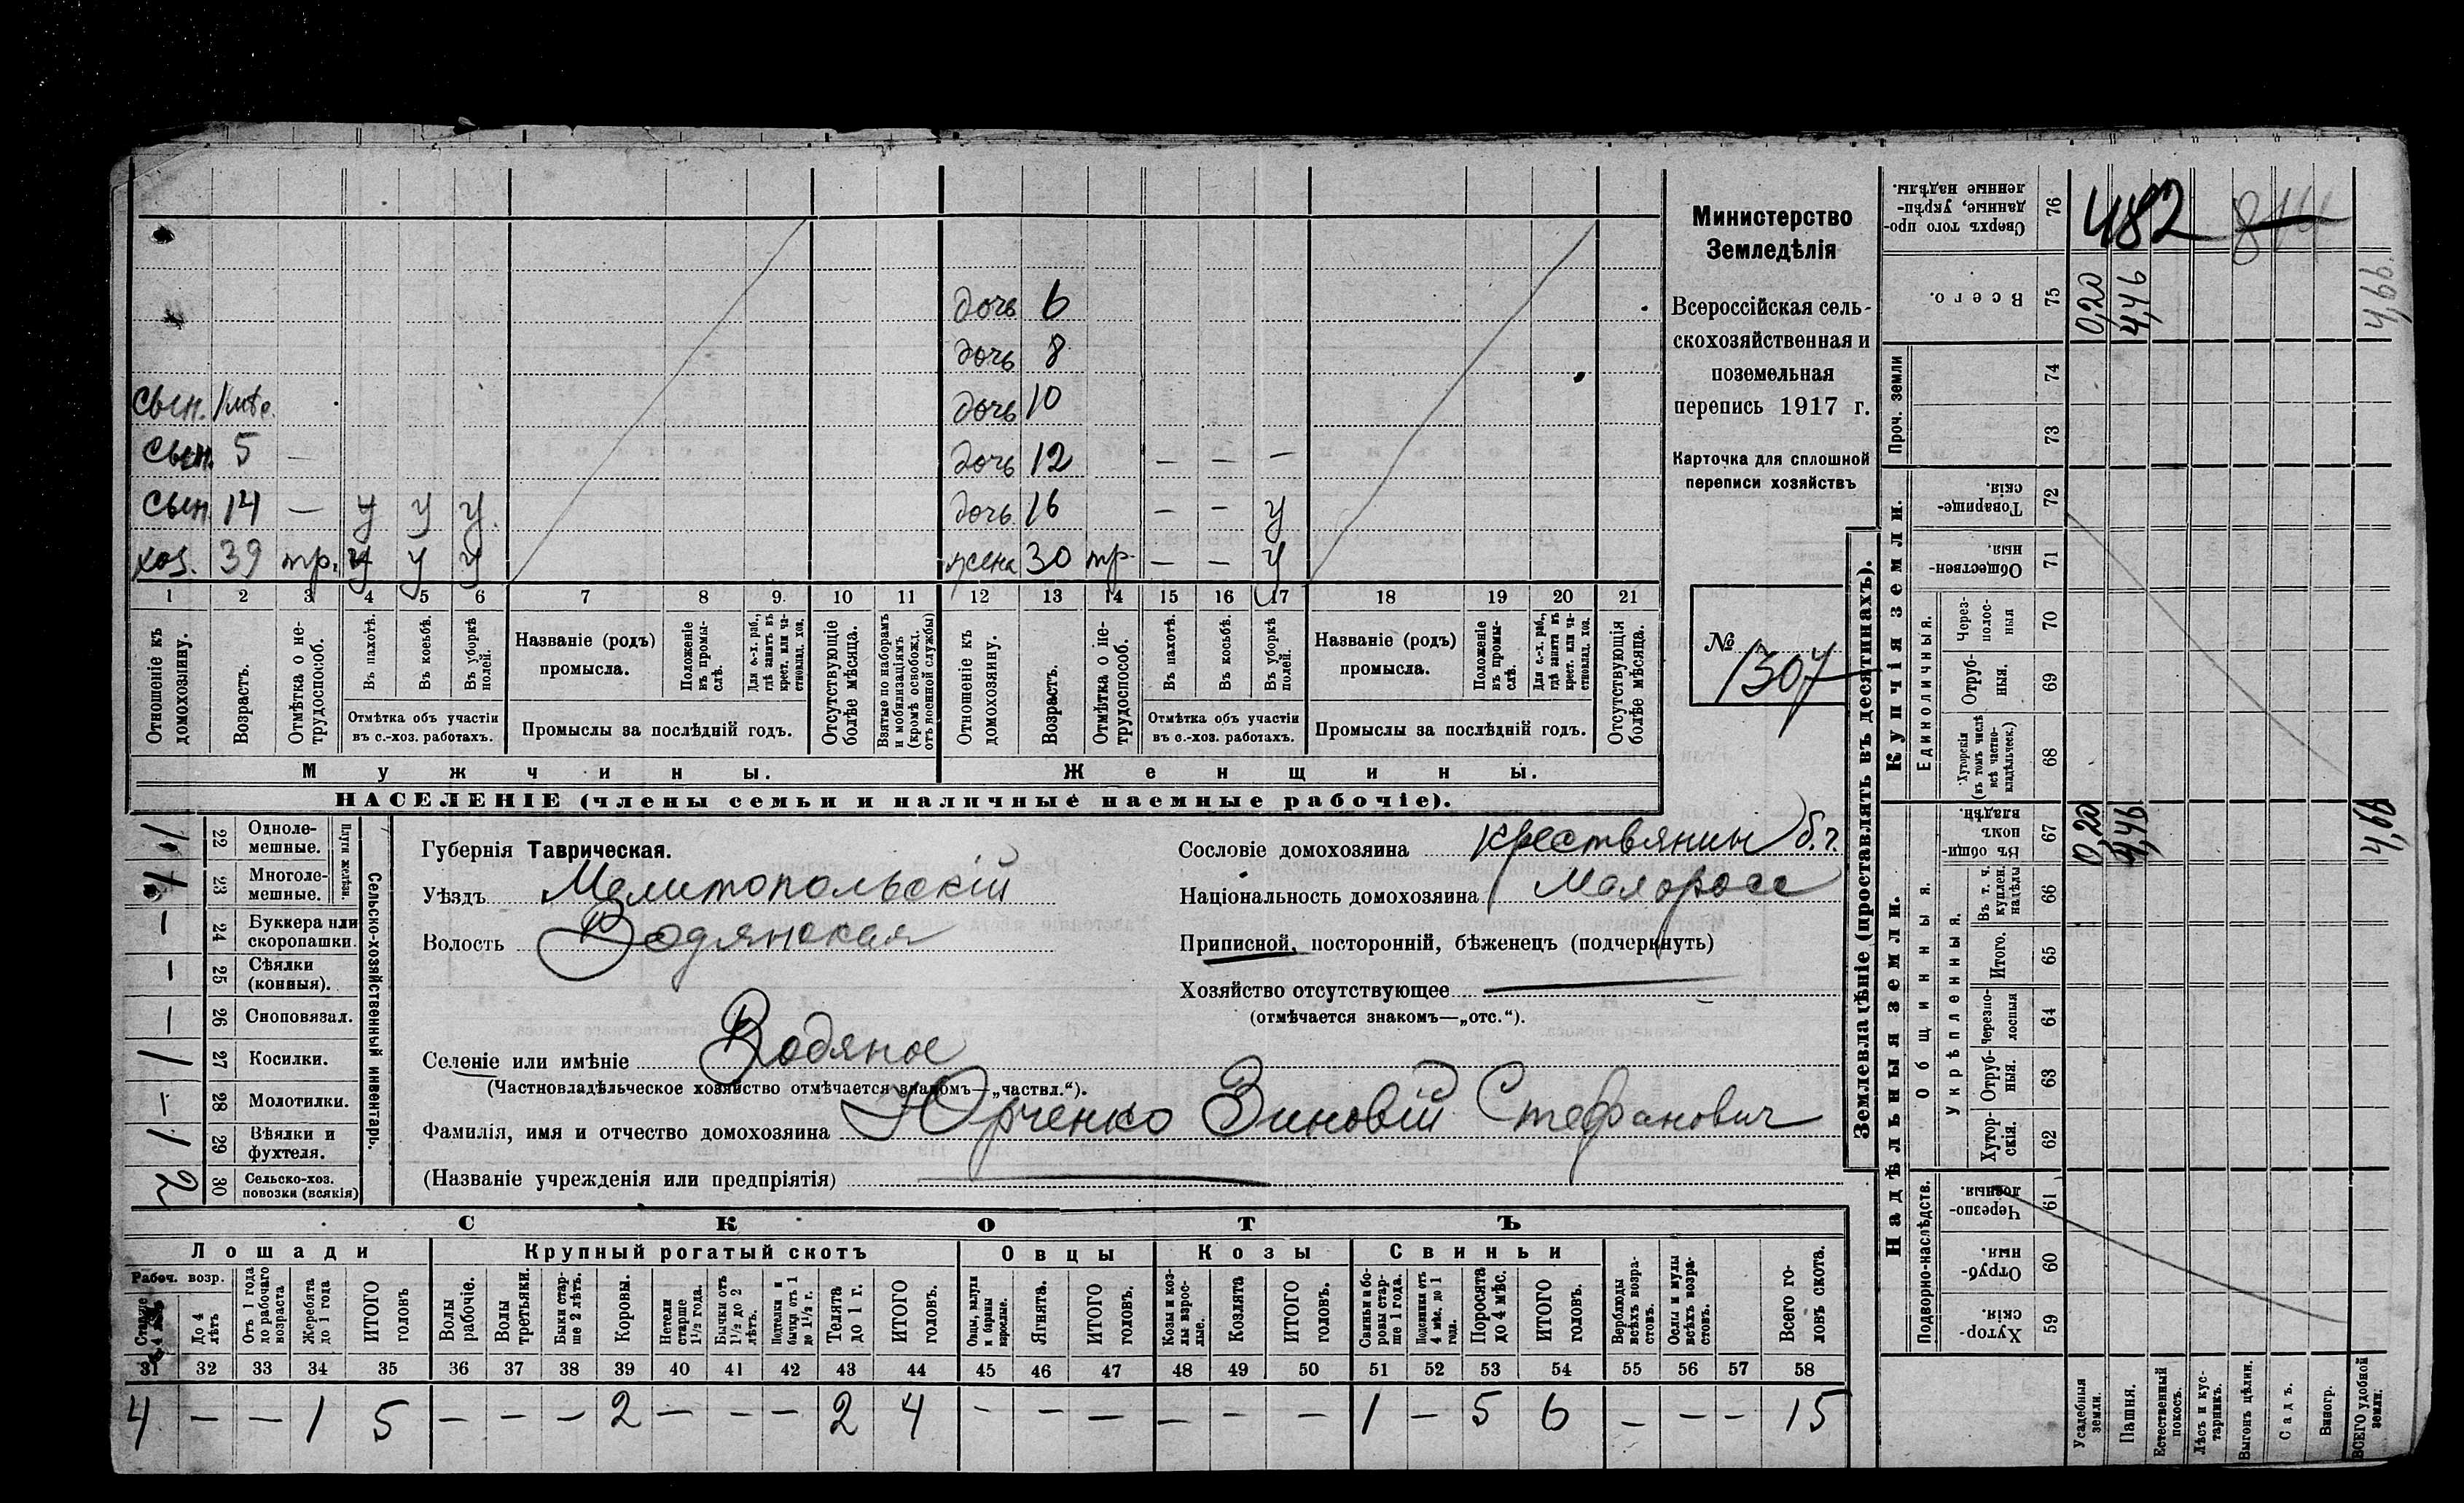 дочь 6
дочь 8
сын. 1 мѣс. дочь 10
сын. 5 — дочь 12 — — —
сын 14 — у у у. дочь 16 — — у
хоз. 39 тр. у у у жена 30 тр. — — у
1 2 3 4 5 6 7 8 9. 10 11 12 13 14 15 16 17 18 19 20 21
Отношеніе къ домохозяину.
Возрастъ.
Отмѣтка о нетрудоспособ.
Въ пахотѣ.
Въ косьбѣ.
Въ уборкѣ полей.
Отмѣтка объ участіи
въ с.-хоз. работахъ.
Названіе (родъ)
промысла.
Положеніе въ промыслѣ.
Для с.-х. раб., гдѣ занятъ въ крест. или частновлад. хоз.
Промыслы за послѣдній годъ.
Отсутствующіе болѣе мѣсяца.
Взятые по наборамъ и мобилизаціямъ (кромѣ освобожд. отъ военной службы)
Отношеніе къ домохозяину.
Возрастъ.
Отмѣтка о нетрудоспособ.
Въ пахотѣ.
Въ косьбѣ.
Въ уборкѣ полей.
Отмѣтка объ участіи
въ с.-хоз. работахъ.
Названіе (родъ)
промысла.
Положеніе въ промыслѣ.
Для с.-х. раб., гдѣ занята въ крест. или частновлад. хоз.
Промыслы за послѣдній годъ.
Отсутствующія болѣе мѣсяца.
Мужчины. Женщины.
НАСЕЛЕНІЕ (члены семьи и наличные наемные рабочіе).
Министерство
Земледѣлія
Всероссійская сель-
скохозяйственная и
поземельная
перепись 1917 г.
Карточка для сплошной
переписи хозяйствъ
№ 1307
Сельско-хозяйственный инвентарь.
Плуги желѣзн.
22 Одноле-
мешные. 1
23 Многоле-
мешные. 1
24 Буккера или
скоропашки. —
25 Сѣялки
(конныя). —
26 Сноповязал. —
27 Косилки. 1
28 Молотилки. —
29 Вѣялки и
фухтеля. 1
30 Сельско-хоз.
повозки (всякія) 2
Губернія Таврическая.
Уѣздъ Мелитопольскій
Волость Водянская
Селеніе или имѣніе Водяное
(Частновладѣльческое хозяйство отмѣчается знакомъ—„частвл.“).
Фамилія, имя и отчество домохозяина Юрченко Зиновій Стефанович
(Названіе учрежденія или предпріятія) —
Сословіе домохозяина крестьянин б.г.
Національность домохозяина Малоросс
Приписной, посторонній, бѣженецъ (подчеркнуть)
Хозяйство отсутствующее —
(отмѣчается знакомъ—„отс.“).
СКОТЪ
Лошади Крупный рогатый скотъ Овцы Козы Свиньи
Рабоч. возр.
Старше 4 лѣтъ
До 4 лѣтъ
Отъ 1 года до рабочаго возраста
Жеребята до 1 года
ИТОГО головъ
Волы рабочіе.
Волы третьяки.
Быки старше 2 лѣтъ.
Коровы.
Нетели старше 1½ года.
Бычки отъ 1½ до 2 лѣтъ.
Подтелки и бычки отъ 1 до 1½ г.
Телята до 1 г.
ИТОГО головъ.
Овцы, валухи и бараны взрослые.
Ягнята.
ИТОГО головъ.
Козы и козлы взрослые.
Козлята
ИТОГО головъ.
Свиньи и боровы старше 1 года.
Подсвинки отъ 4 мѣс. до 1 года.
Поросята до 4 мѣс.
ИТОГО головъ.
Верблюды всѣхъ возрастовъ.
Ослы и мулы всѣхъ возрастовъ.
Всего головъ скота.
31 32 33 34 35 36 37 38 39 40 41 42 43 44 45 46 47 48 49 50 51 52 53 54 55 56 57 58
4 — — 1 5 — — — 2 — — — 2 4 — — — — — — 1 — 5 6 — — — 15
Землевладѣніе (проставлять въ десятинахъ).
Купчія земли.
Надѣльныя земли.
Сверхъ того проданные, укрѣпленные надѣлы. 76 482 814
Всего. 75 0,20 4,46 4,66
Проч. земли 74
73
Товарищескія. 72
Общественныя. 71
Единоличныя.
Черезполосныя 70
Отрубныя. 69
Хуторскія (въ томъ числѣ всѣ частновладѣльческ.) 68
Общинныя.
Въ общинномъ владѣн. 67 0,20 4,46 4,66
Укрѣпленныя.
Въ т. ч. куплен. надѣлы 66
Итого. 65
Черезполосныя 64
Отрубныя. 63
Хуторскія. 62
Подворно-наслѣдств.
Черезполосныя. 61
Отрубныя. 60
Хуторскія. 59
Усадебныя земли.
Пашня.
Естественный покосъ.
Лѣсъ и кустарникъ.
Выгонъ цѣлин.
Садъ.
Виногр.
ВСЕГО удобной земли.